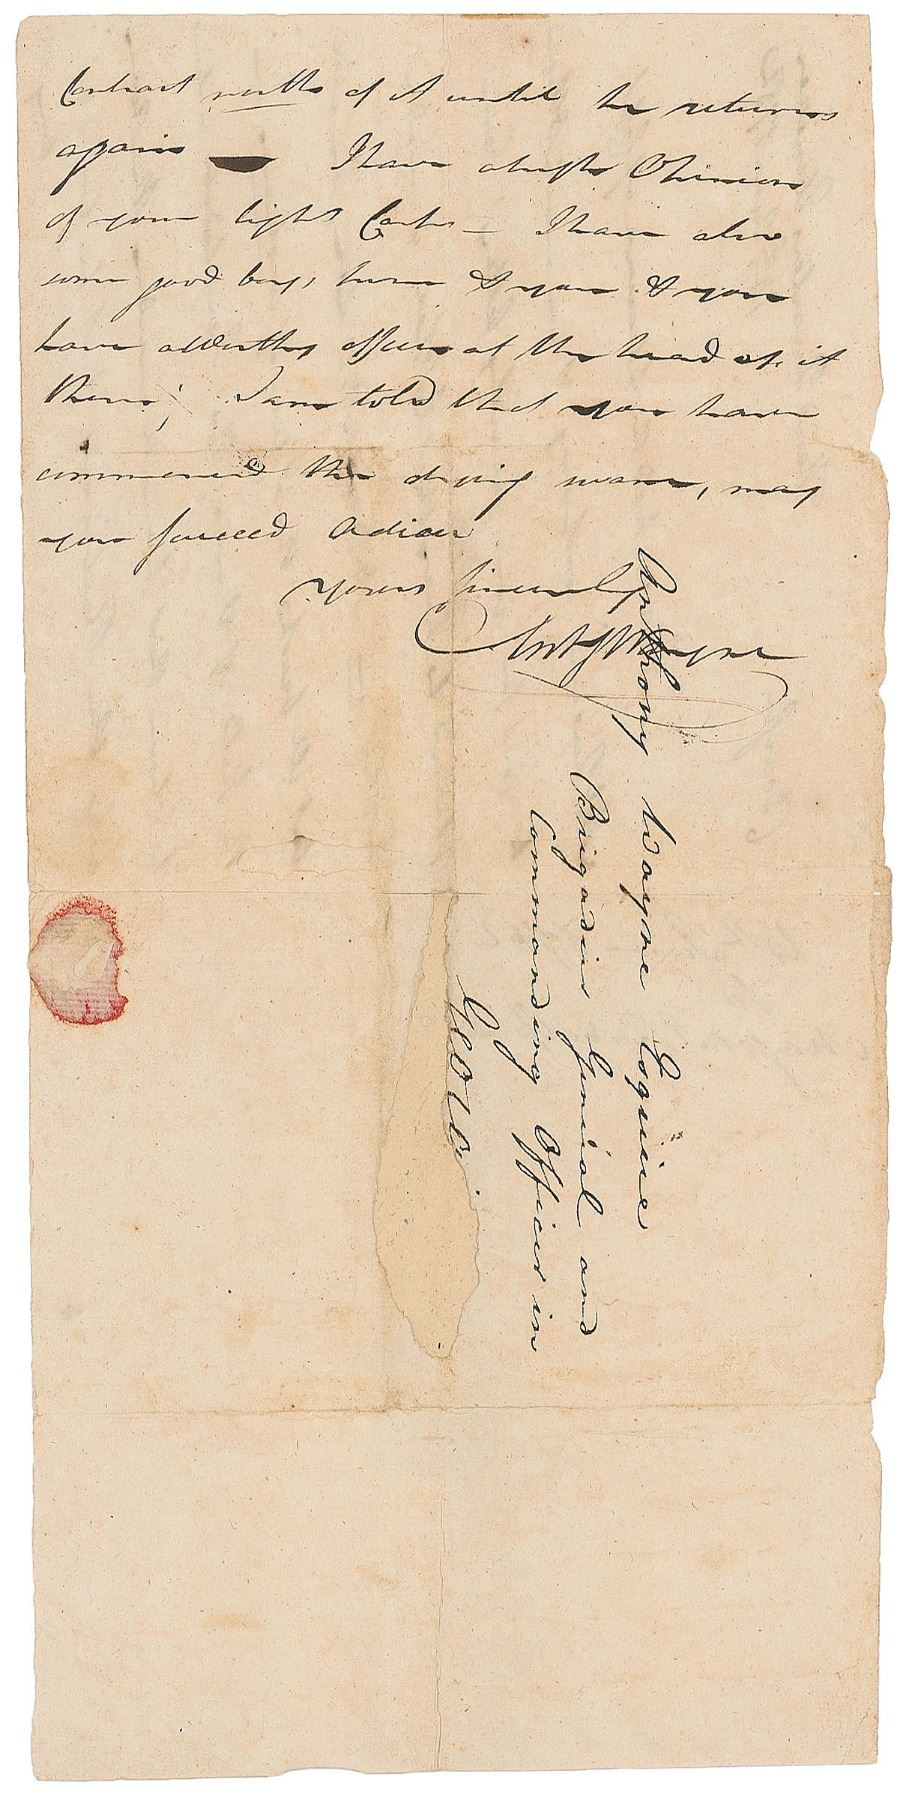 Contract north of it until he returns
again — I have a high Opinion
of your light Corps — I have also
some good boys here & you & you
have a Worthy officer at the head of it
there; I am told that you have
commenced the drying, may
you succeed Adieu
Yours Sincerely
Anty Wayne
Anthony Wayne Esquire
Brigadier General and
Commanding Officer in